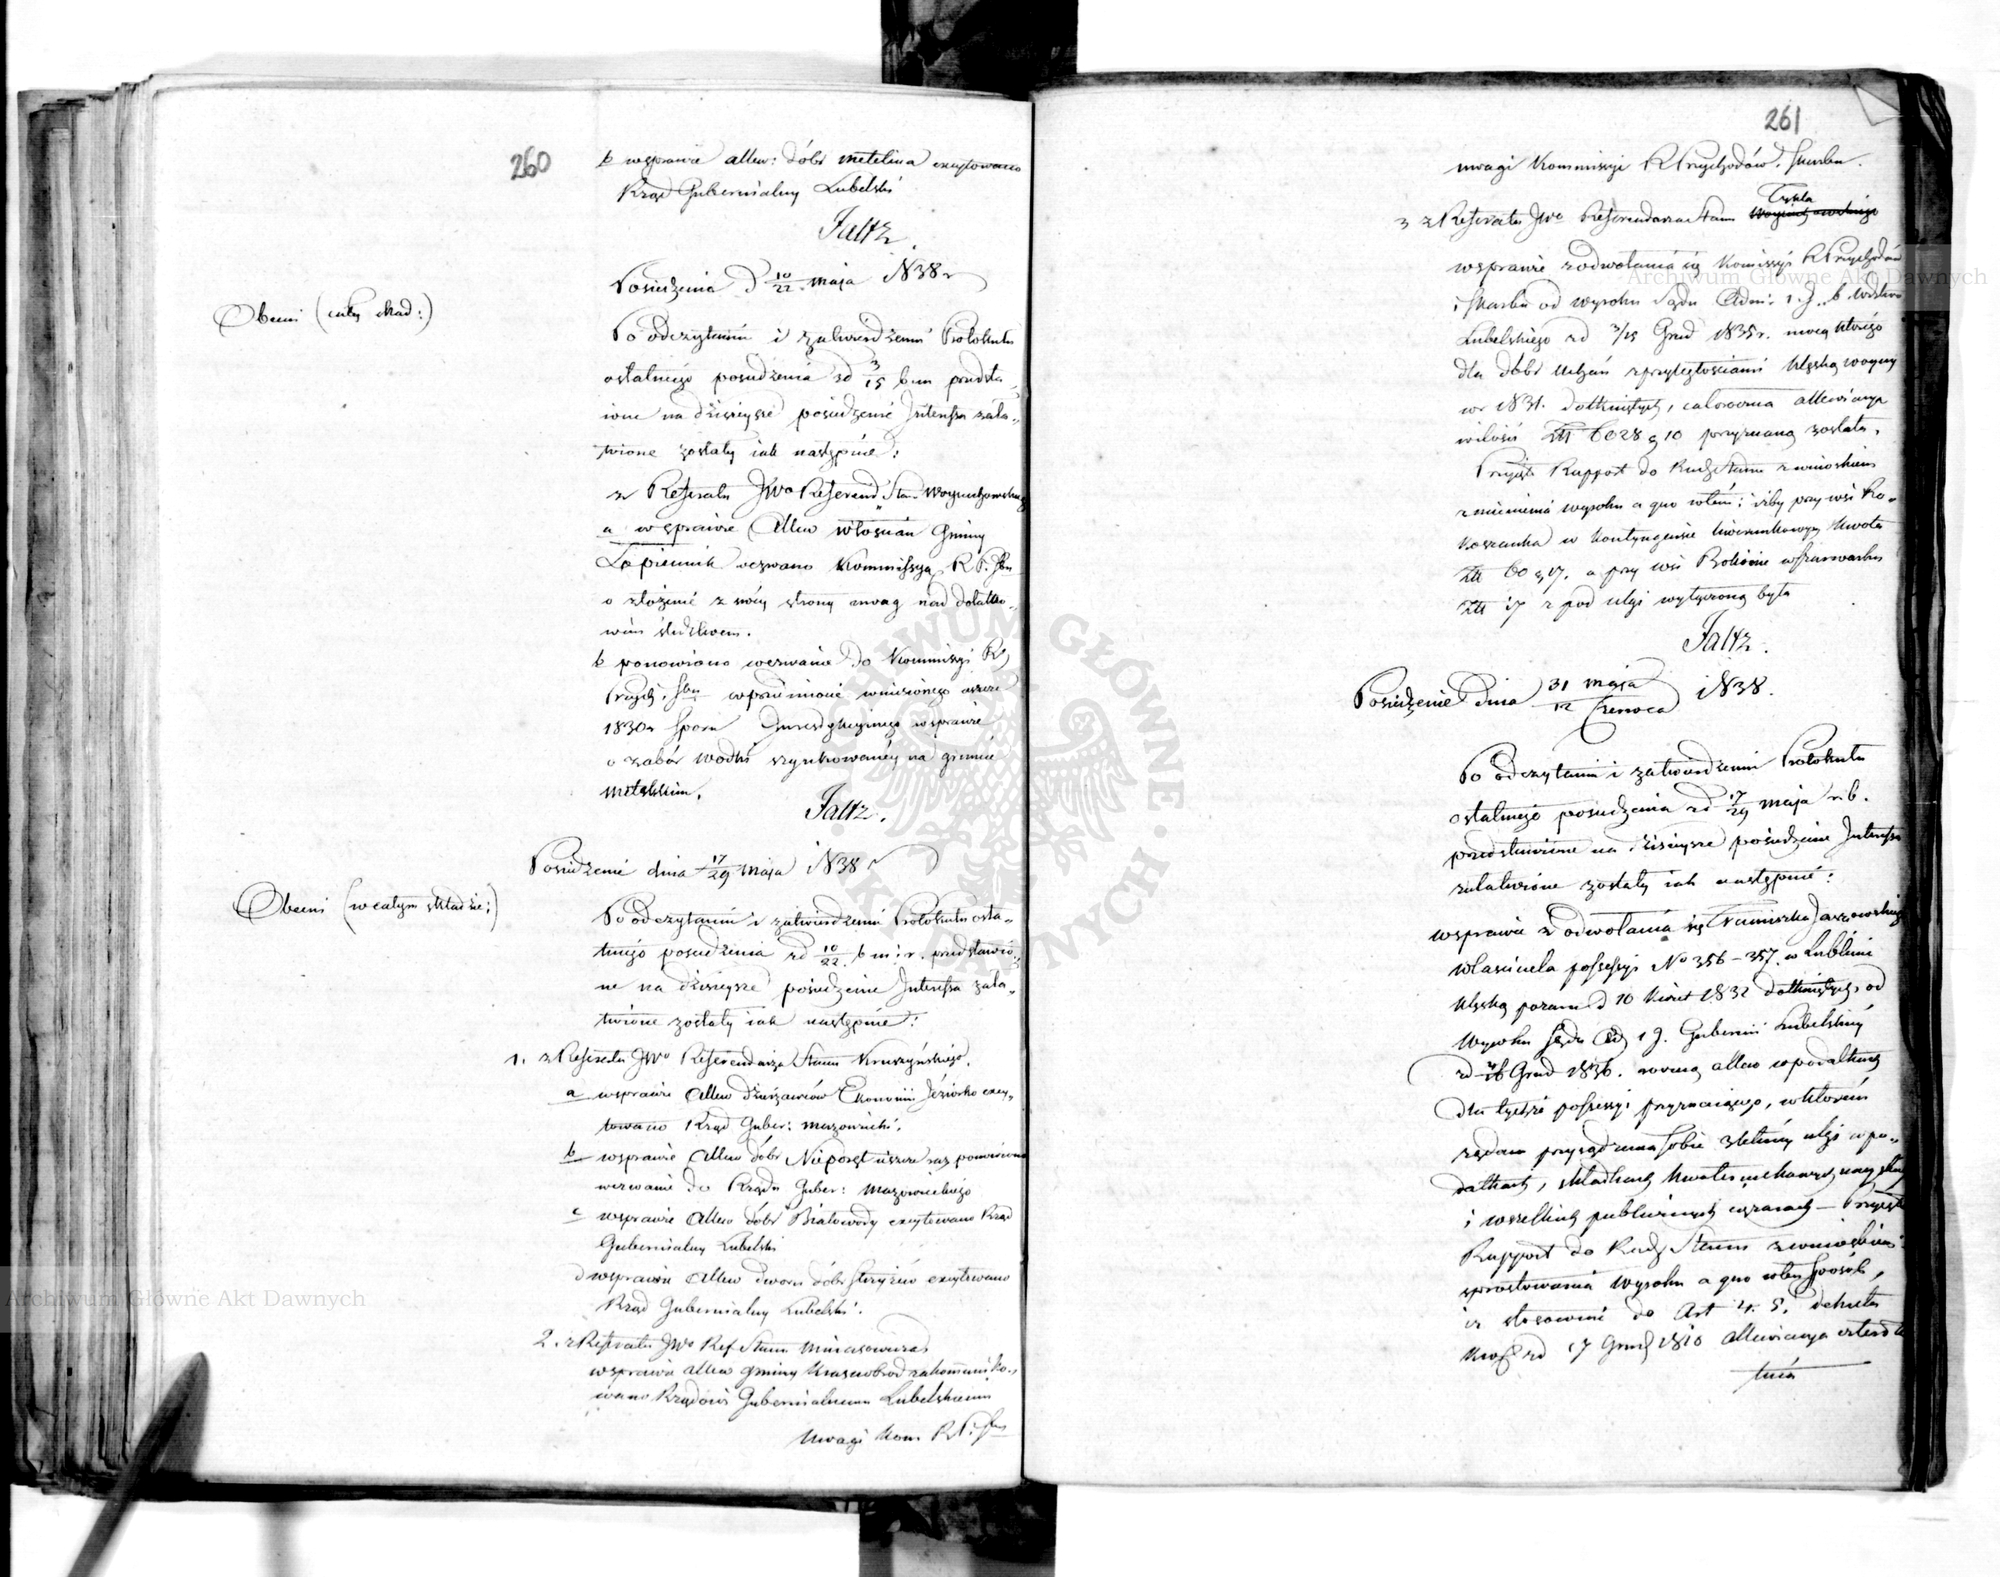 260
b w sprawie allew: dóbr Metelina excytowano
Rząd Gubernialny Lubelski
Faltz.
Posiedzenia D 10/22 Maja 1838 r
Obecni (cały skład:)
Po odczytaniu i zatwierdzeniu Protokułu
ostatniego posiedzenia z d 3/15 b m przedsta„
ione na dzisieysze posiedzenie Interessa zała„
twione zostały iak następuie:
z Referatu JWo Referend Stanu Woyciechowskiego
a w sprawie Allew włościan Gminy
Łopiennik wezwano Kommissyą R. P. Sbu
o złożenie z swéy strony uwag nad dodatko„
wém śledztwem.
b ponowiono wezwanie do Kommissyi R
Przych: Sbu w przedmiocie wniesionego ieszcze
1830 r sporu Jurisdykcyinego w sprawie
o zabór wódki szynkowanéy na gruncie
Faltz.
Posiedzenie dnia 17/29 Maja 1838 r
Obecni (w całym składzie:)
Po odczytaniu i zatwierdzeniu Protokułu osta„
tniego posiedzenia z d 10/22. b m: r. przedstawio„
ne na dzisieysze posiedzenie Interessa zała„
twione zostały iak następuie:
1. z Referatu JWo Referendarza Stanu Kruszyńskiego.
a w sprawie Allew dzierżawców Ekonomii Jeziorko excy„
towano Rząd Guber: Mazowiecki.
b w sprawie Allew dóbr Nieporęt ieszcze raz ponowiono
wezwanie do Rządu Guber: Mazowieckiego
c w sprawie Allew dóbr Białowody excytowano Rząd
Gubernialny Lubelski
d w sprawie Allew dworu dóbr Strzyżów excytowano
Rząd Gubernialny Lubelski.
2. z Referatu JWo Ref Stanu
w sprawie allew gminy Krasnobród zakommuniko„
wano Rządowi Gubernialnemu Lubelskiemu
Uwagi Kom. R. P. Sbu
261
uwagi Kommissyi R Przychodów i Skarbu.
Tykla
3 z Referatu JWo Referendarza Stanu Woyciechowskiego
w sprawie z odwołania się Komissyi R Przychodów
i Skarbu od wyroku Sądu Admi: 1. J. b. Wdztwa
Lubelskiego z d 3/15 Grud 1835 r. mocą którego
dla dóbr Uchań z przyległościami klęską woyny
w r 1831. dotkniętych, całoroczna allewiacya
w ilości Złł 6028 g 10 przyznaną została.
Przyjęto Rapport do Rady Stanu z wnioskiem
zmienienia wyroku a quo w tém: iżby przy wsi Ro„
koszanka w kontyngensie liwerunkowym kwota
Złł 60 g 17. a przy wsi w szarwarku
Złł 17 z pod ulgi wyłączoną była
Faltz.
Posiedzenie dnia 31 Maja/12 Czerwca 1838.
Po odczytaniu i zatwierdzeniu Protokułu
ostatniego posiedzenia z d 17/29 Maja r. b.
przedstawione na dzisieysze posiedzenie Interessa
załatwione zostały iak następuie:
w sprawie z odwołania się Franciszka Jaszowskiego
właściciela possessyi No 356–357. w Lublinie
klęską pożaru d 10 Kwiet 1832 dotkniętych, od
Wyroku Sądu Ad 1 J. Gubernii Lubelskiéy
Grud 1836. roczną allew w podatkach
dla tychże possessyi przyznaiącego, w którém
żądano przysądzenia sobie 3 letniéy ulgi w po„
datkach, składkach kwaterunkowych
i wszelkich publicznych ciężarach — Przyięto
Rapport do Rady Stanu z wnioskiem
sprostowania wyroku a quo w ten sposób,
iż stosownie do Art 4. 5. dekretu
Król z d 17 Grud 1810 allewiacya
tnia